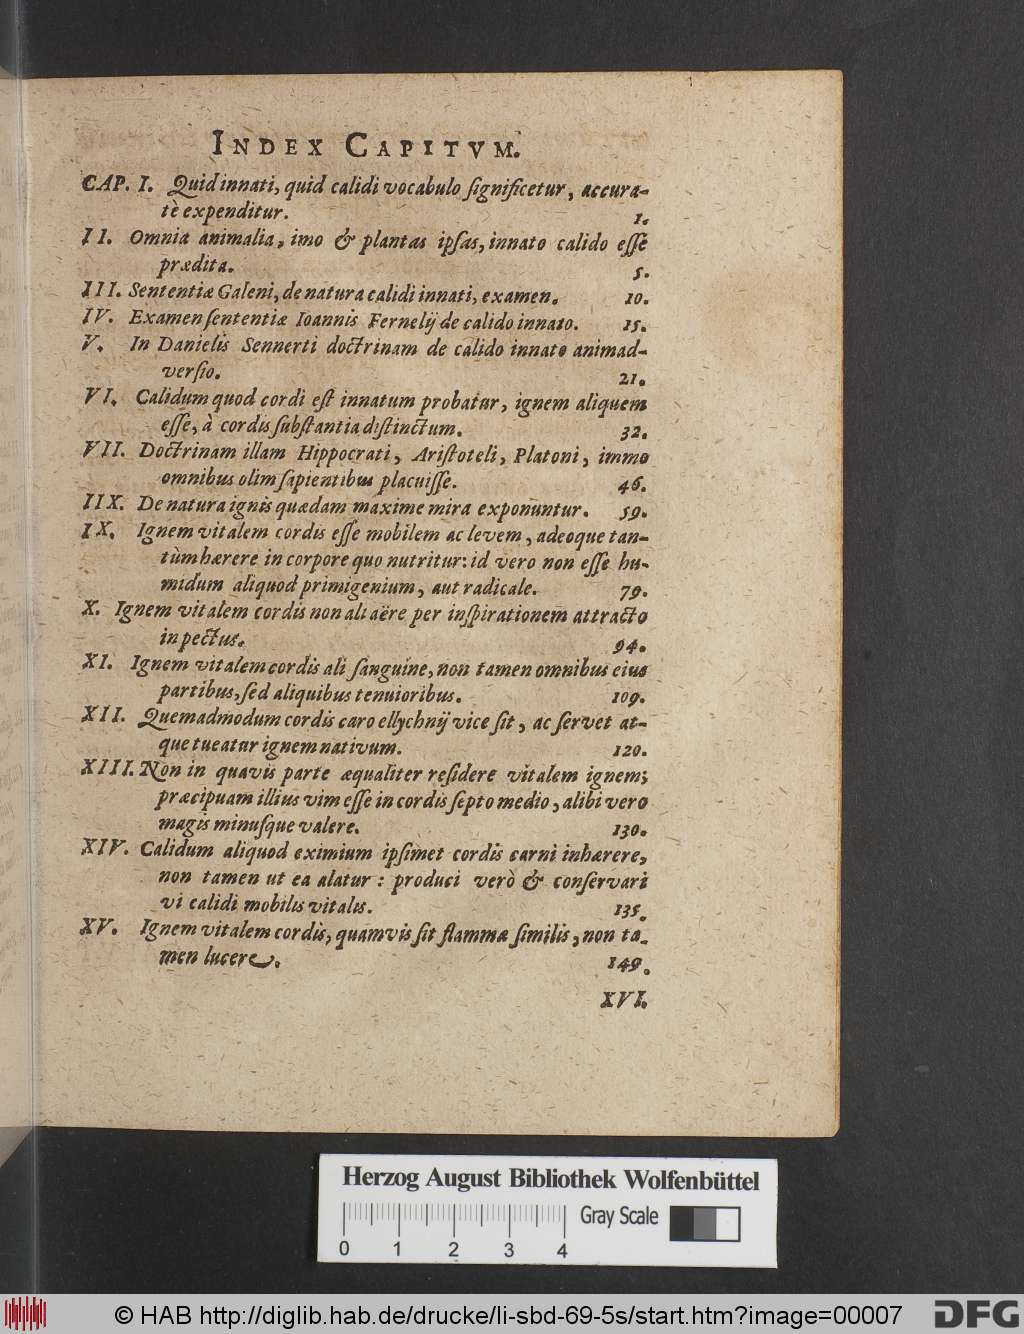 INDEX CAPITVM.
CAP. I. Quid innati, quid calidi vocabulo significetur, accura-
tè expenditur. 1.
II. Omnia animalia, imo & plantas ipsas, innato calido esse
prædita. 5.
III. Sententiæ Galeni, de natura calidi innati, examen. 10.
IV. Examen sententiæ Ioannis Fernelij de calido innato. 15.
V. In Danielis Sennerti doctrinam de calido innato animad-
versio. 21.
VI. Calidum quod cordi est innatum probatur, ignem aliquem
esse, à cordis substantia distinctum. 32.
VII. Doctrinam illam Hippocrati, Aristoteli, Platoni, immo
omnibus olim sapientibus placuisse. 46.
IIX. De natura ignis quædam maxime mira exponuntur. 59.
IX. Ignem vitalem cordis esse mobilem ac levem, adeoque tan-
tùm hærere in corpore quo nutritur: id vero non esse hu-
midum aliquod primigenium, aut radicale. 79.
X. Ignem vitalem cordis non ali aëre per inspirationem attracto
in pectus. 94.
XI. Ignem vitalem cordis ali sanguine, non tamen omnibus eius
partibus, sed aliquibus tenuioribus. 109.
XII. Quemadmodum cordis caro ellychnij vice sit, ac servet at-
que tueatur ignem nativum. 120.
XIII. Non in quavis parte æqualiter residere vitalem ignem;
præcipuam illius vim esse in cordis septo medio, alibi vero
magis minusque valere. 130.
XIV. Calidum aliquod eximium ipsimet cordis carni inhærere,
non tamen ut ea alatur: produci verò & conservari
vi calidi mobilis vitalis. 135.
XV. Ignem vitalem cordis, quamvis sit flammæ similis, non ta-
men lucere. 149.
XVI.
Herzog August Bibliothek Wolfenbüttel
Gray Scale
0 1 2 3 4
© HAB http://diglib.hab.de/drucke/li-sbd-69-5s/start.htm?image=00007
DFG